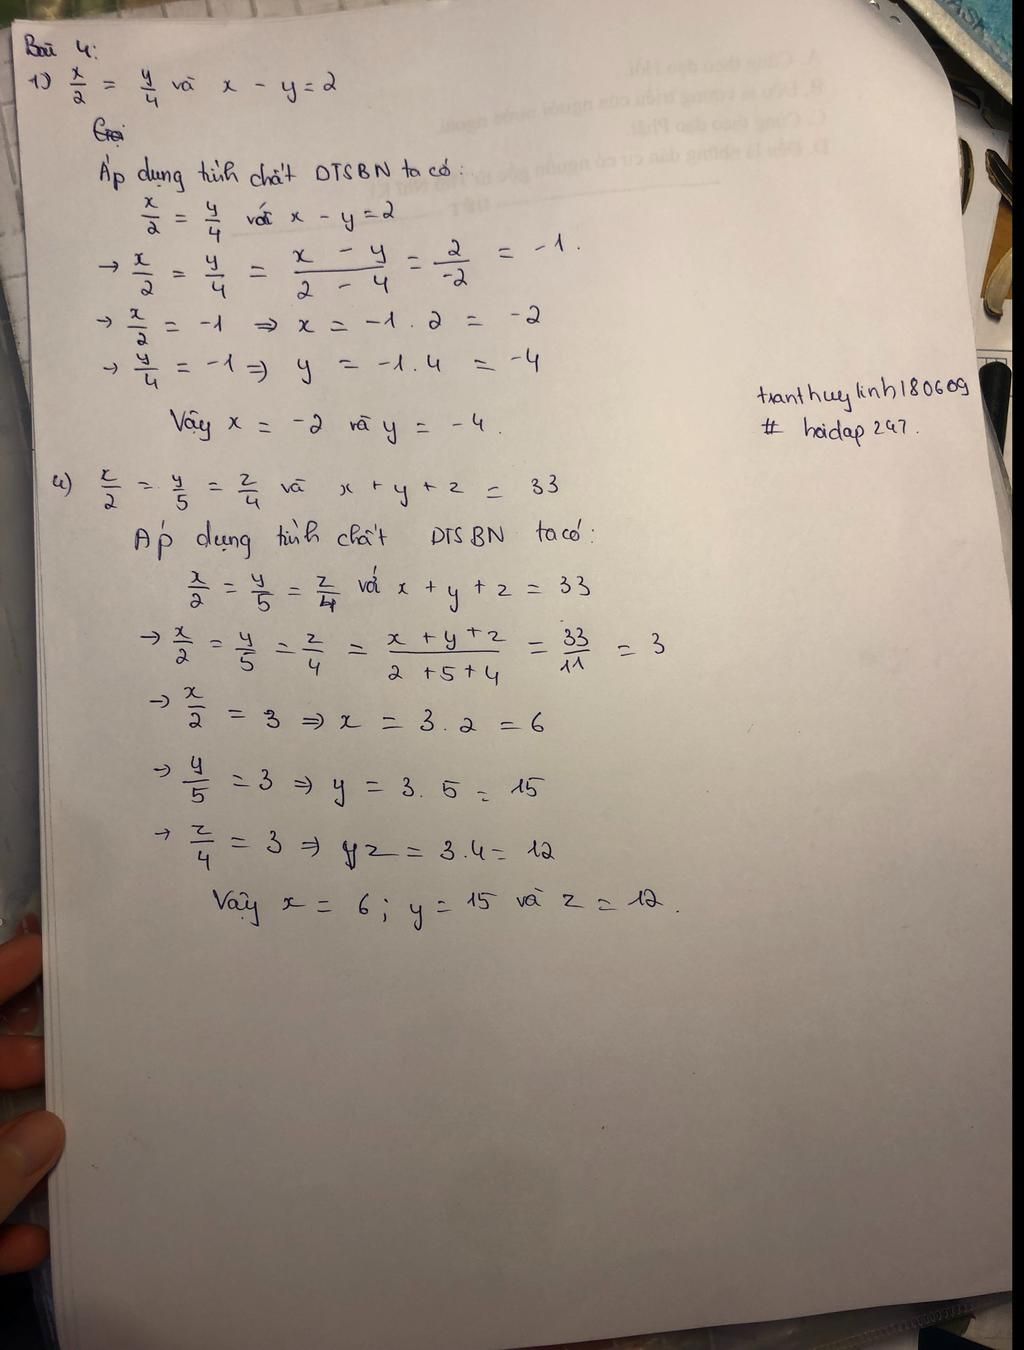 Bài 4:
1) x/2 = y/4 và x - y = 2
Gọi
Áp dụng tính chất DTSBN ta có:
x/2 = y/4 với x - y = 2
→ x/2 = y/4 = (x - y)/(2 - 4) = 2/-2 = -1.
→ x/2 = -1 ⇒ x = -1 . 2 = -2
→ y/4 = -1 ⇒ y = -1.4 = -4
Vậy x = -2 và y = -4.
tranthuylinh180609
# hoidap247.
4) x/2 = y/5 = z/4 và x + y + z = 33
Áp dụng tính chất DTSBN ta có:
x/2 = y/5 = z/4 với x + y + z = 33
→ x/2 = y/5 = z/4 = (x + y + z)/(2 + 5 + 4) = 33/11 = 3
→ x/2 = 3 ⇒ x = 3 . 2 = 6
→ y/5 = 3 ⇒ y = 3. 5 = 15
→ z/4 = 3 ⇒ z = 3.4 = 12
Vậy x = 6; y = 15 và z = 12.